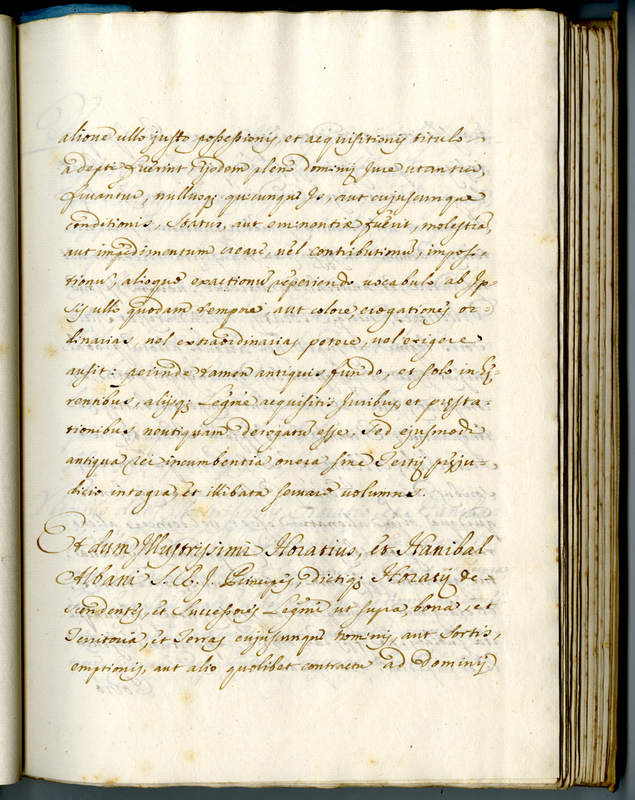 aliove ullo justo possessionis, et acquisitionis titulo
adepti fuerint ejsdem pleno dominij Jure utantur,
fruantur, nullusq; quicunque Is, aut cujuscunque
conditionis, Status, aut eminentiæ fuerit, molestias,
aut impedimentum creare, vel contributionus, imposi-
tionus, alioque exactionus reperiendo vocabulo ab Ip-
sis ullo quodam tempore, aut colore, erogationes or-
dinarias, vel extraordinarias petere, vel exigere
ausit: perinde tamen antiquis fundo, et solo inhæ-
rentibus, alijsq; Legme acquisitis Juribus, et præsta-
tionibus neutiquam derogatum esse, Sed ejusmodi
antiqua rei incumbentia onera sine Tertij præju-
dicio integra, et illibata servare volumus.
Et dum Illustrissimi Horatius, et Hanibal
Albani S. R. I. Principes, dictiq; Horatij de-
scendentes, et Successores Legme ut supra, bona, et
Territoria, et Terras cujuscunque nominis, aut sortis,
emptionis, aut alio quolibet contractu ad Dominij